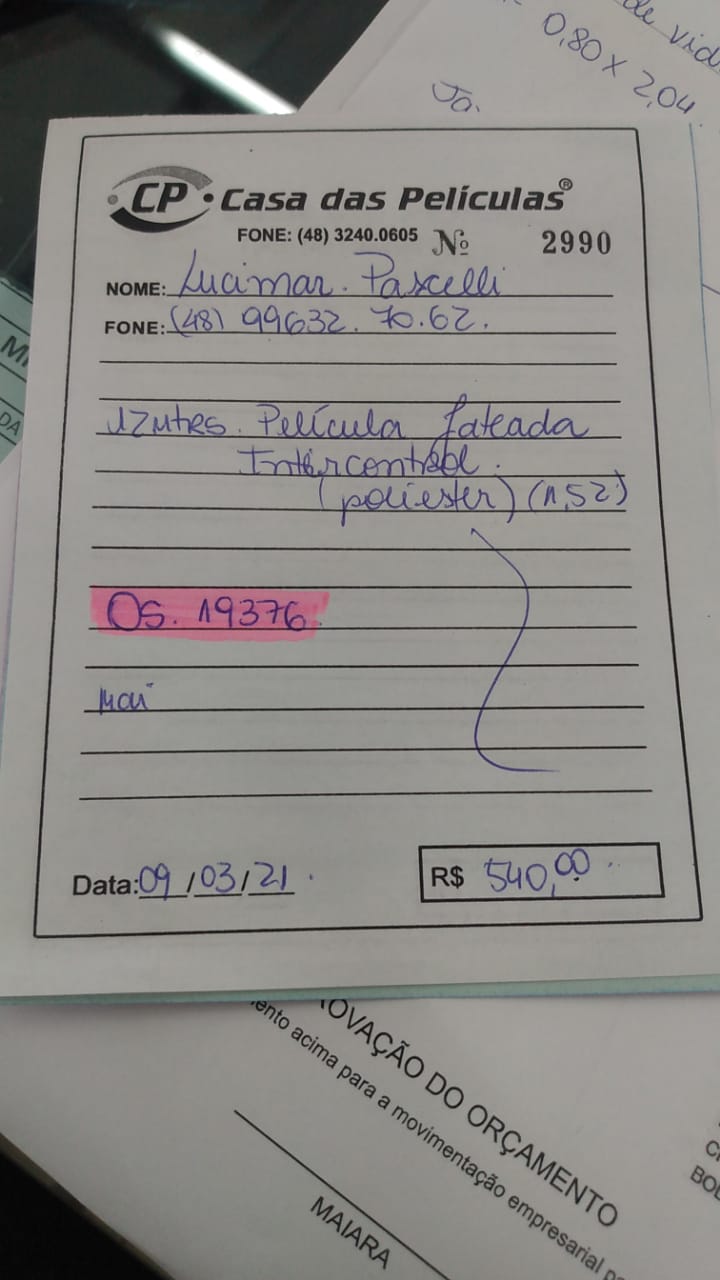 de vid
0,80 x 2,04.
Ja.
CP · Casa das Películas®
FONE: (48) 3240.0605 Nº 2990
NOME: Lucimar. Pascelli
FONE: (48) 99632.70.62.
12mtes. Película Jateada
Intercontrol.
(poliester) (1,52)
OS. 19376
Mai
Data: 09/03/21.
R$ 540,00
OVAÇÃO DO ORÇAMENTO
ento acima para a movimentação empresarial
MAIARA
BOL